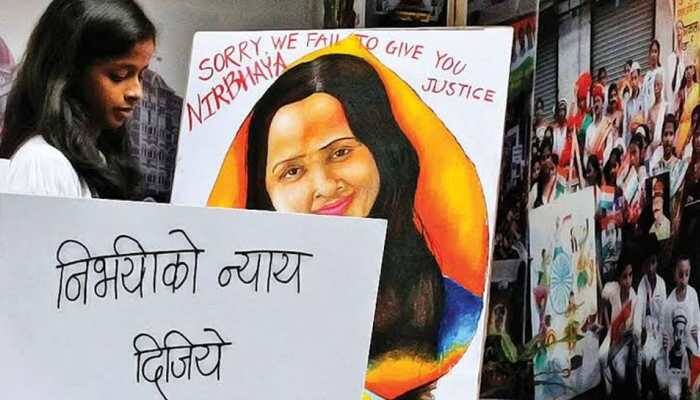 SORRY, WE FAIL TO GIVE YOU
NIRBHAYA
JUSTICE
निर्भयाको न्याय
दिजिये